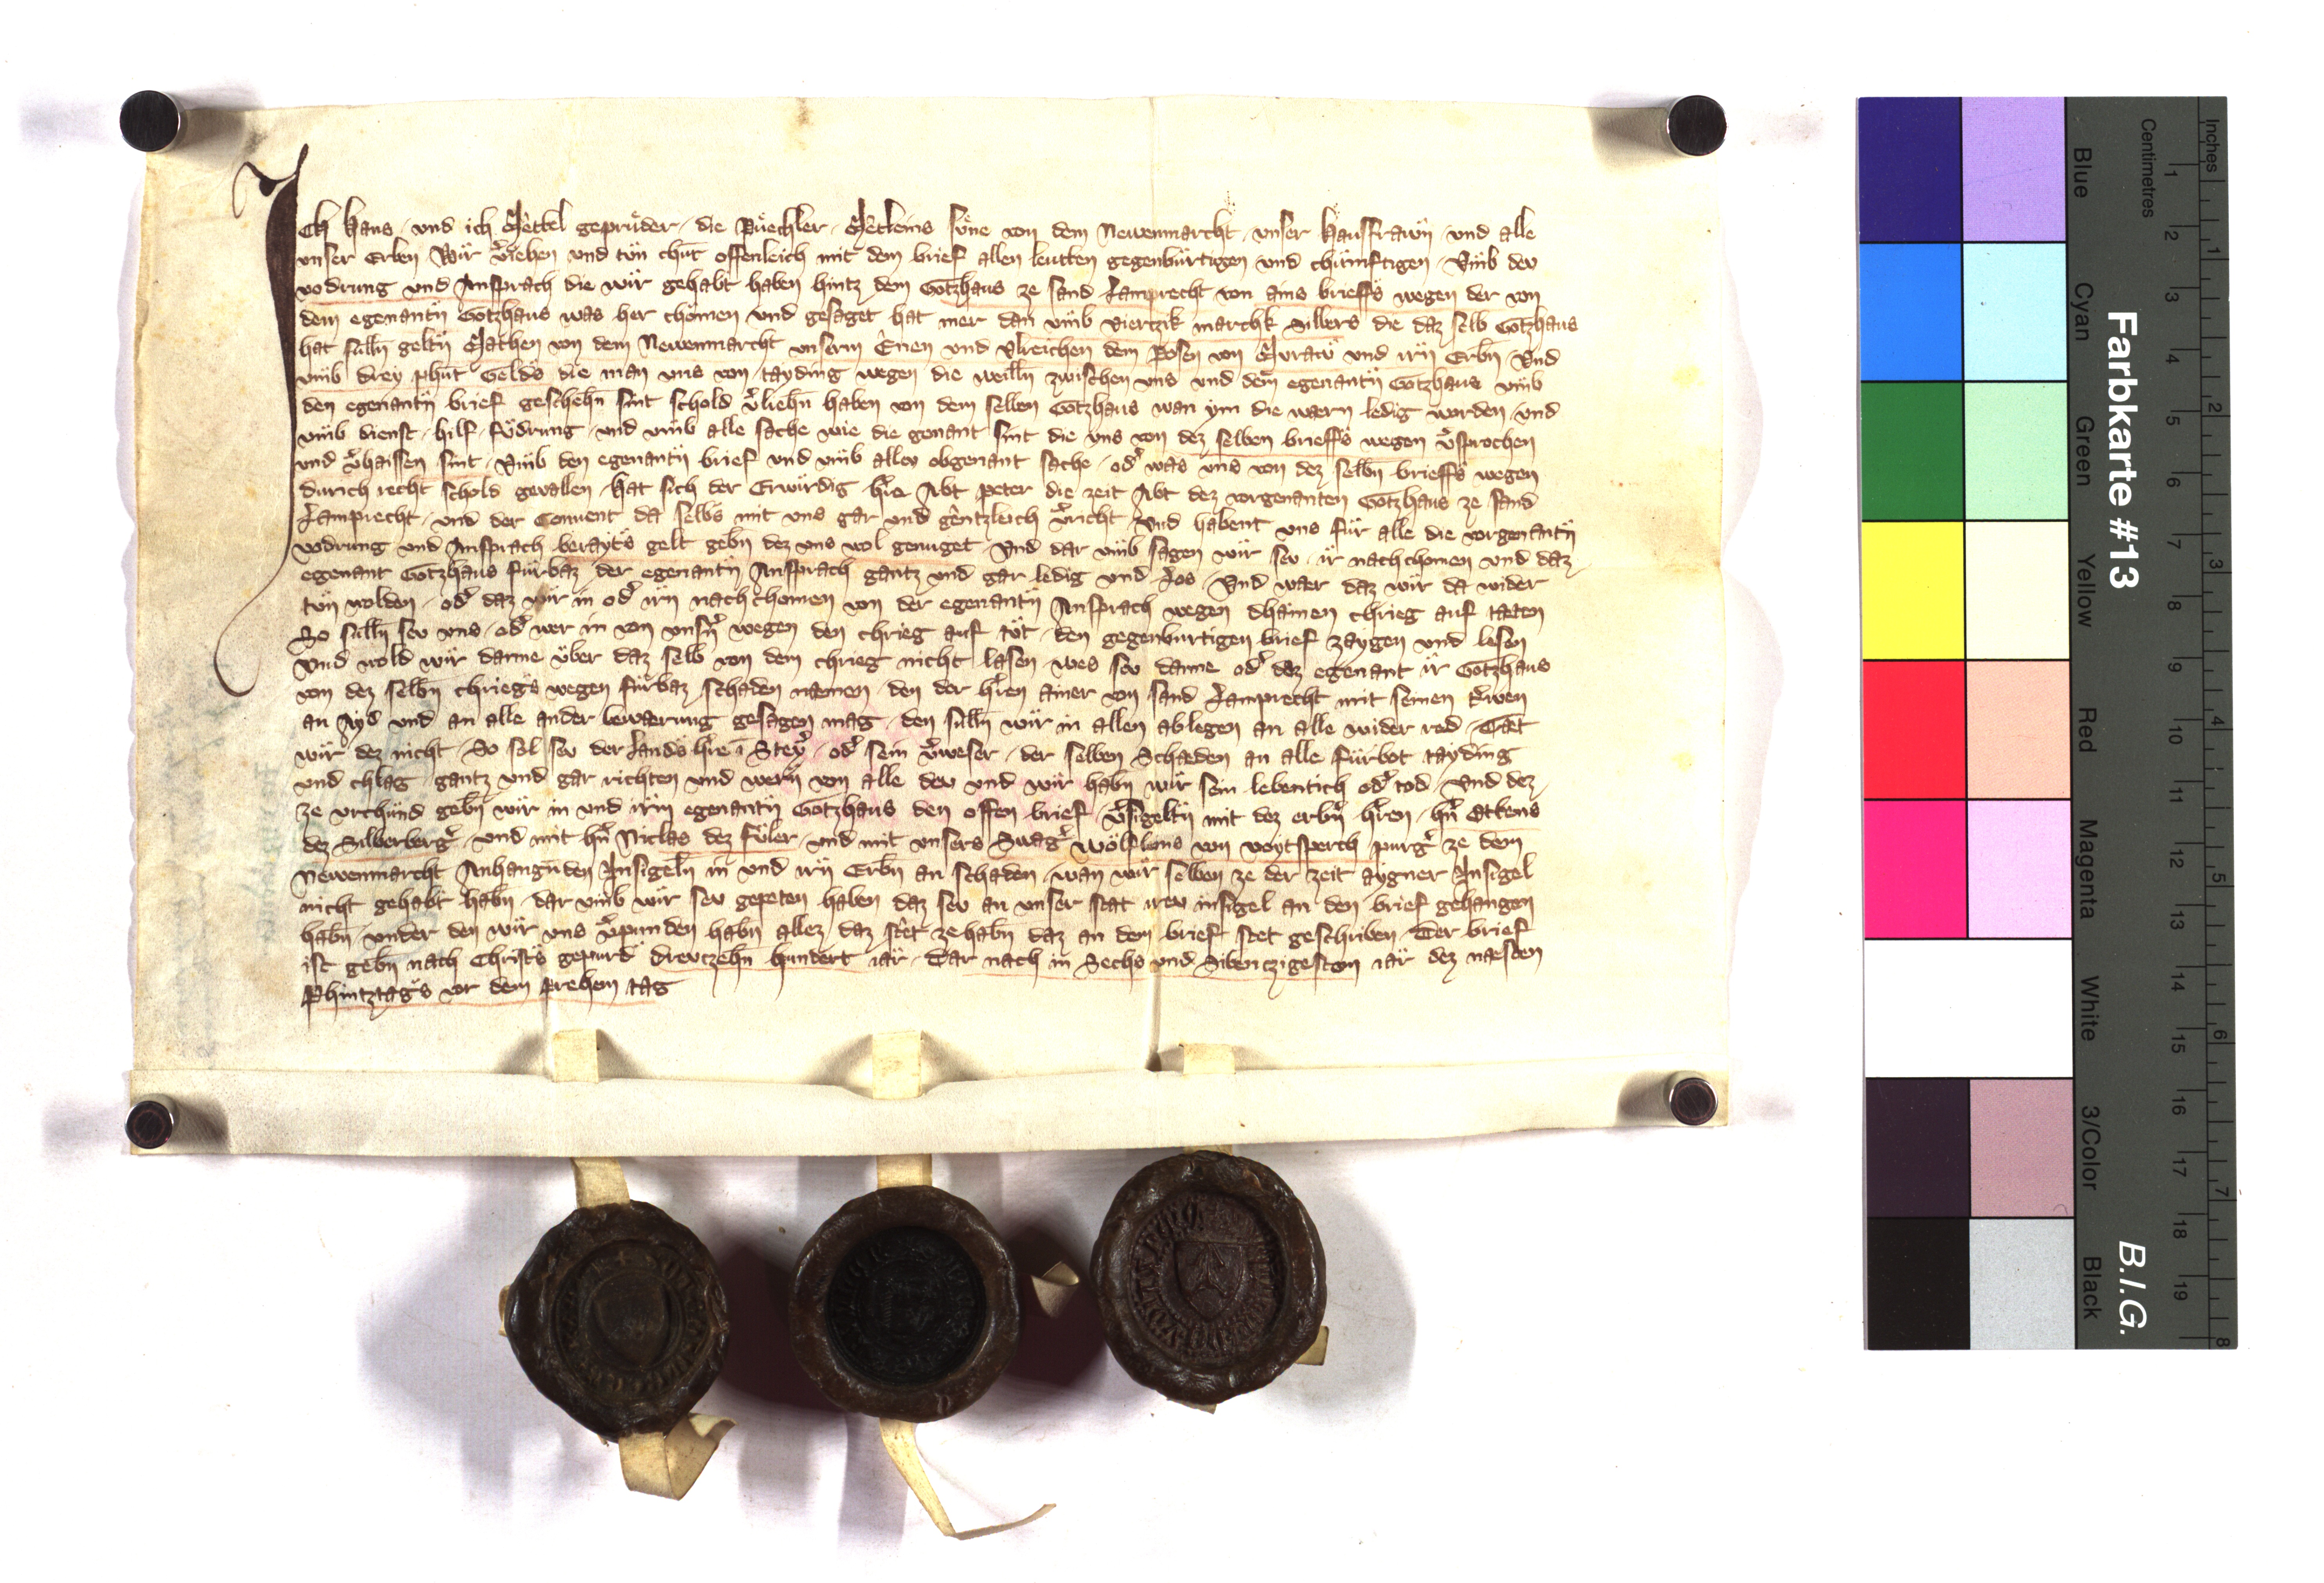 Ich Hans und ich Mettel geprüder die Püechler Metleins süne von dem Newenmarcht unser Hausfrawn und alle
unser Erben Wir v̓iehen und tün chut offenleich mit dem brief allen leutten gegenbürtigen und chünftigen Umb dev
vodrung und Ansprach die wir gehabt haben hintz dem Gotzhaus ze sand Lamprecht von ains brieffs wegen der von
dem egenantn̄ Gotzhaus was her chömen und gesaget hat mer dan umb vierczik marchk Silbers die daz selb Gotzhaus
hat sulln̄ geltn̄ Mathen von dem Newenmarcht unserm Enen und Ulreichen dem Posen von Muraw und irn̄ Erbn̄ Und
umb drey phūt Gelds die man uns von tayding wegen die weilln̄ zwischen uns und dem egenantn̄ Gotzhaus umb
den egenantn̄ brief geschehn̄ sint schold v̓liehn̄ haben von dem selben Gotzhaus wan ym die warn ledig worden und
umb dienst hilf födrung und umb alle sache wie die genant sint die uns von dez selben brieffs wegen v̓sprochen
und v̓haissen sint Umb den egenantn̄ brief und umb allev obgenant sache od̓ was uns von dez selbn̄ brieffs wegen
durich recht schold gevallen Hat sich der Erwürdig h̓re Abt Peter die zeit Abt dez vorgenanten Gotzhaus ze sand
Lamprecht und der Convent da selbs mit uns gar und gentzleich v̓richt Und habent uns für alle die vorgenantn̄
vodrung und Ansprach berayts gelt gebn̄ dez uns wol genuget Und dar umb sagen wir sev ir nachchomen und daz
egenant Gotzhaus fürbaz der egenantn̄ Ansprach gantz und gar ledig und Los Und waer daz wir da wider
tün wolden od̓ daz wir in od̓ irn̄ nachchomen von der egenantn̄ Ansprach wegen dhainen chrieg auf taeten
So sulln̄ sev uns od̓ wer in von unsn̓ wegen den chrieg auf tüt den gegenburtigen brief zaygen und lesen
Und wold wir danne über daz selb von dem chrieg nicht lasen wes sev danne od̓ dez egenant ir Gotzhaus
von dez selbn̄ chriegs wegen fürbaz schaden namen den der h̓ren ainer von sand Lamprecht mit seinen trewen
an Ayd und an alle ander bewaerung gesagen mag den sulln̄ wir in allen ablegen an alle wider red Taet
wir dez nicht So sol sev der Lands h̓re ī Stey̓ od̓ sein v̓weser der selben Schaeden an alle fürbot tayding
und chlag gantz und gar richten und wern̄ von alle dev und wir habn̄ wir sein lebentich od̓ tod Und dez
ze urchünd gebn̄ wir in und irm egenantn̄ Gotzhaus den offen brief v̓sigeltn̄ mit dez erbn̓ h̓ren hn̓ Ottens
dez Silberberg̓ und mit hn̓ Niclas dez Füler und mit unsers Swag̓ Wölfleins von Voytsperch purg̓ ze dem
Newenmarcht Anhangunden Insigeln̄ in und irn̄ Erbn̄ an schaden wan wir selben ze der zeit aygner Insigel
nicht gehabt habn̄ dar umb wir sev gepeten haben daz sev an unser stat irev insigel an den brief gehangen
habn̄ under den wir uns v̓pinden habn̄ allez daz stet ze habn̄ daz an dem brief stet geschriben Der brief
ist gebn̄ nach Christs gepurd drevczehn̄ hundert iar dar nach in Sechs und Sibenczigesten iar dez naesten
Phintztags vor dem Prehem tag
Farbkarte #13
B.I.G.
Centimetres
Inches
Blue
Cyan
Green
Yellow
Red
Magenta
White
3/Color
Black
1 2 3 4 5 6 7 8 9 10 11 12 13 14 15 16 17 18 19
1 2 3 4 5 6 7 8